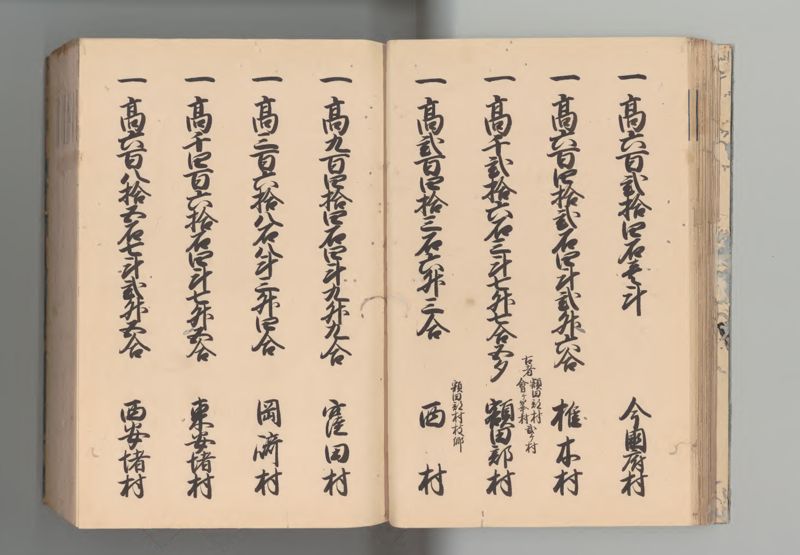 一 高六百弐拾四石壱斗 今國府村
一 高六百四拾弐石四斗弐升六合 椎木村
古者額田部村弐ヶ村
會ヶ峯村
一 高千弐拾六石三斗七升七合五夕 額田部村
額田部村枝郷
一 高弐百四拾三石六升三合 西村
一 高九百四拾四石四斗九升九合 窪田村
一 高三百六拾八石八斗三升四合 岡﨑村
一 高千四百六拾石四斗七升五合 東安堵村
一 高六百八拾五石七斗弐升五合 西安堵村